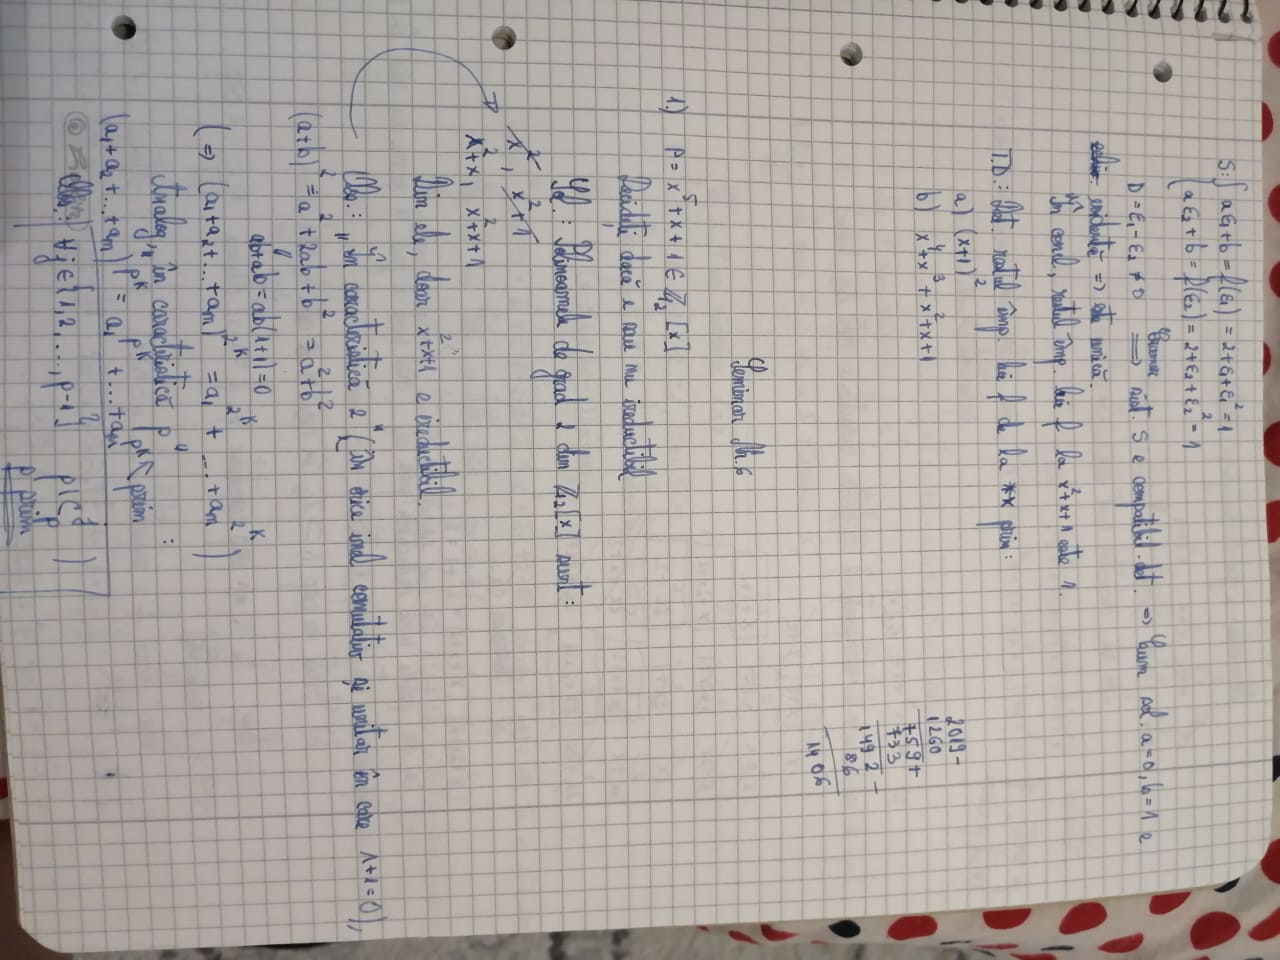 S: { aε₁+b = f(ε₁) = 2+ε₁+ε₁² = 1
{ aε₂+b = f(ε₂) = 2+ε₂+ε₂² = 1
D = ε₁-ε₂ ≠ 0 =Cramer=> sist. S e compatibil det. => Cum sol. a=0, b=1 e
evidentă => este unică.
În concl., restul împ. lui f la x²+x+1 este 1.
T.D.: Det. restul împ. lui f de la ** prin:
a) (x+1)²
b) x⁴+x³+x²+x+1
2019-
1260
759+
733
1492-
86
1406
Seminar Nr. 6
1.) P = x⁵+x+1 ∈ ℤ₂[x]
Decideți dacă e sau nu ireductibil
Sol.: Polinoamele de grad 2 din ℤ₂[x] sunt:
x², x²+1
x²+x, x²+x+1
Din ele, doar x²+x+1 e ireductibil.
Obs.: "În caracteristică 2" (în orice inel comutativ și unitar în care 1+1=0),
(a+b)² = a²+2ab+b² = a²+b²
ab+ab = ab(1+1) = 0
(=> (a₁+a₂+...+aₙ)^2^k = a₁^2^k + ... + aₙ^2^k)
Analog, "în caracteristică p" prim:
(a₁+a₂+...+aₙ)^p^k = a₁^p^k + ... + aₙ^p^k
Obs.: ∀ j ∈ {1,2,...,p-1} p | C_p^j )
p prim